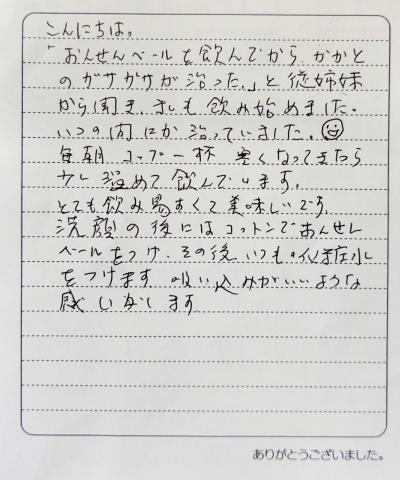 こんにちは。
「おんせんベールを飲んでから かかと
のガサガサが治った。」と従姉妹
から聞き、私も飲み始めました。
いつの間にか治っていました。
毎朝 コップ一杯 寒くなってきたら
少し温めて飲んでいます。
とても飲み易すくて美味しいです。
洗顔の後にはコットンでおんせん
ベールをつけ、その後いつもの化粧水
をつけます 吸い込みがいいような
感じがします
ありがとうございました。